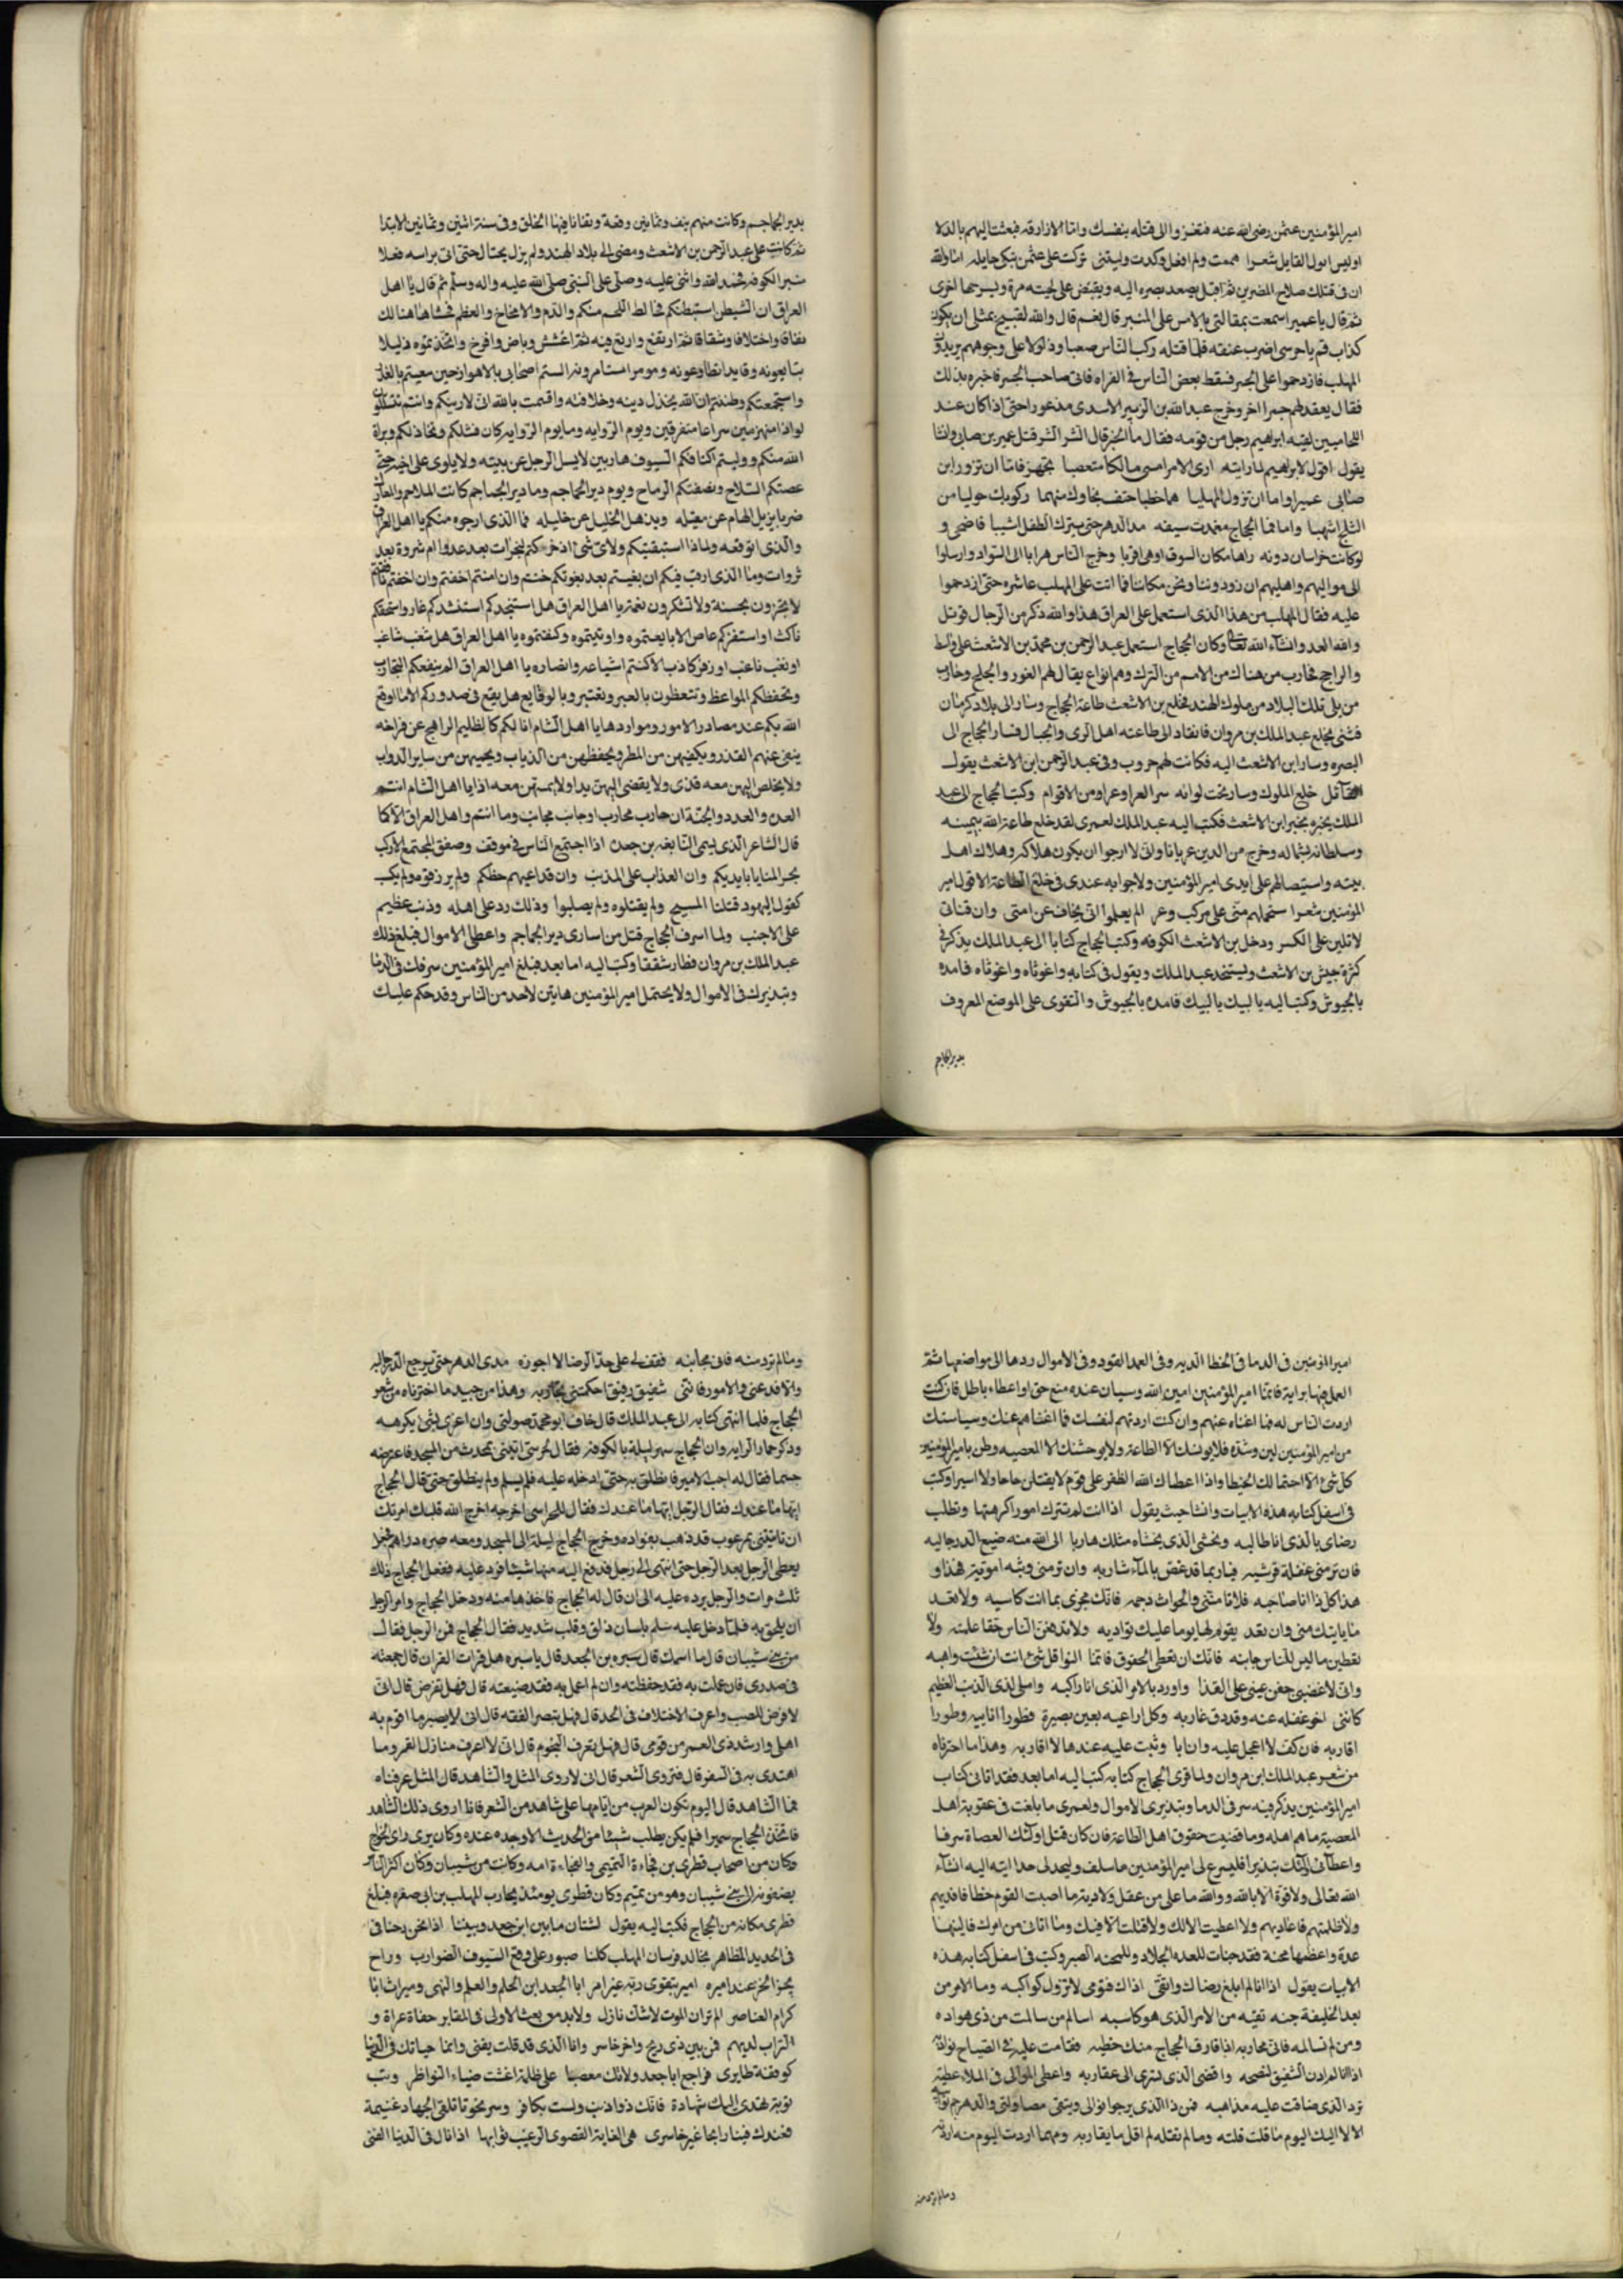 امير المؤمنين عثمن رضى الله عنه فتغزوا الى قتله بنفسك واما الازارقه فبعثت اليهم بالبدلا
اوليس ابول القايل شعرا هممت ولم افعل وكدت وليتنى تركت على عثمن تبكى حلايله اما والله
ان فى قتلك صلاح المصرين ثم اقبل يصعد بصره اليه ويقبض على لحيته مرة ويسرحها اخرى
ثم قال يا عمير اسمعت بمقالتى بالامس على المنبر قال نعم قال والله لقبيح بمثلى ان يكون
كذاب قم يا حرسى اضرب عنقه فلما قتله ركب الناس صعبا وذلولا على وجوههم يريدون
المهلب فازدحموا على الجسر فسقط بعض الناس فى الفراه فاتى صاحب الجسر فاخبره بذلك
فقال يعقد لهم جسرا اخر وخرج عبد الله بن الزبير الاسدى مذعورا حتى اذا كان عند
اللحاميين لقيه ابراهيم رجل من قومه فقال ما الخبر قال الشر الشر قتل عمير بن صابى وانشا
يقول اقول لابراهيم لما رايته ارى الامر امسى مالكا متعصبا تجهز فاما ان تزور ابن
صابى عميرا واما ان تزول المهلبا هما خطبا حتف نجاوك منهما ركوبك حوليا من
الثلج اشهبا واما فما الحجاج مغمدت سيفه مد الدهر حتى يترك الطفل اشيبا فاضحى و
لو كانت خراسان دونه راها مكان السوق او هى اقربا وخرج الناس هرابا الى السواد وارسلوا
الى مواليهم واهليهم ان زودونا ونحن مكاننا فما اتت على المهلب عاشره حتى ازدحموا
عليه فقال المهلب من هذا الذى استعمل على العراق هذا والله ذكر من الرجال قوتل
والله العدو انشاء الله تعالى وكان الحجاج استعمل عبد الرحمن بن محمد بن الاشعث على
والراجح فحارب من هناك من الامم من الترك وهم انواع يقال لهم الغور والجلج وحارب
من يلى تلك البلاد من ملوك الهند فخلع بن الاشعث طاعة الحجاج وسار الى بلاد كرمان
فثنى بخلع عبد الملك بن مروان فانقاد الى طاعته اهل الرى والجبال فسار الحجاج الى
البصره وسار ابن الاشعث اليه فكانت لهم حروب وفى عبد الرحمن ابن الاشعث يقول
خلع الملوك وسار تحت لوائه سر العرا وعراعر من الاقوام وكتب الحجاج الى عبد
الملك يخبره بخبر ابن الاشعث فكتب اليه عبد الملك لعمرى لقد خلع طاعة الله بيمينه
وسلطانه بشماله وخرج من الدين عريانا وانى لارجوا ان يكون هلاكه وهلاك اهل
بيته واستيصالهم على ايدى امير المؤمنين ولا جوابه عندى فى خلع الطاعة الا قول امير
المؤمنين شعرا ستحملهم منى على مركب وعر الم يعلموا انى يخاف عن امتى وان قناتى
لا تلين على الكسر ودخل بن الاشعث الكوفه وكتب الحجاج كتابا الى عبد الملك يذكر فى
كثرة جيش بن الاشعث ويستنجد عبد الملك ويقول فى كتابه واغوثاه واغوثاه فامده
بالجيوش وكتب اليه يا لبيك يا لبيك فامده بالجيوش والتقوى على الموضع المعروف
بدير الجماجم
بدير الجماجم وكانت منهم نيف وثمانين وقعة وتفانا فيها الخلق وفى سنة اثنين وثمانين الابتدا
ثم كانت على عبد الرحمن بن الاشعث ومضى الى بلاد الهند ولم يزل يحتال حتى اتى براسه فعلا
منبر الكوفه فحمد الله واثنى عليه وصلى على النبى صلى الله عليه واله وسلم ثم قال يا اهل
العراق ان الشيطن استبطنكم فخالط اللحم منكم والدم والامخاخ والعظم فحشاها هنالك
نفاقا واختلافا وشقاقا ثم ارتفع واربع فيه ثم اعشش وباض وافرخ واتخذتموه دليلا
تتابعونه وقايد اتطاوعونه ومومرا تستامرونه الستم اصحابى بالاهواز حين سعيتم بالغدر
واستجمعتكم وظننتم ان الله يخذل دينه وخلافته واقسمت بالله انى لارينكم وانتم تتسللون
لواذا منهزمين سراعا متفرقين ويوم الزوايه وما يوم الزوايه كان فشلكم وتخاذلكم وبراة
الله منكم ووليتم اكتافكم السيوف هاربين لا يسل الرجل عن بيته ولا يلوى على اخيه حتى
عضتكم السلاح ونصفتكم الرماح ويوم دير الجماجم وما دير الجماجم كانت الملاحم والمعارك
ضربا يزيل الهام عن مقيله ويذهل الخليل عن خليله فما الذى ارجوه منكم يا اهل العراق
والذى اتوقعه ولماذا استبقيتكم ولاى شئ اذخركم لفجرات بعد غدوا ام ثروة بعد
ثروات وما الذى ارقب فيكم ان بغيتم بعد بعوثكم خنتم وان امنتم اخفتم وان اخفتم نافقتم
لا تجزون بحسنة ولا تشكرون نعمة يا اهل العراق هل استنجدكم استنشدكم غار واستحفكم
ناكث او استفزكم عاص الا بايعتموه واويتموه وكفنتموه يا اهل العراق هل شغب شاغب
او نعب ناعب او زفر كاذب الا كنتم اشياعه وانصاره يا اهل العراق الم ينفعكم التجارب
وتحفظكم المواعظ وتتعظون بالعبر وتعتبروا بالوقايع هل يقع فى صدوركم الا ما اوقع
الله بكم عند مصادر الامور ومواردها يا اهل الشام انا لكم كالظليم الرامح عن فراخه
ينفى عنهم القذر ويكفيهن من المطر ويحفظهن من الذياب ويحميهن من ساير الدواب
ولا يخلص اليهن معه قذى ولا يفضى اليهن يدا ولا يمستهن معه اذا يا اهل الشام انتم
العدة والعدد والجنة ان حارب محارب او جانب مجانب وما انتم واهل العراق الا كما
قال الشاعر الذى يسمى النابغه بن جعدة اذا اجتمع الناس فى موقف وصفق المجتمع الاركب
بحر المنايا بايديكم وان العذاب على المذنب وان قد اعيهم حظكم ولم يرزقوه ولم يكتب
كقول اليهود قتلنا المسيح ولم يقتلوه ولم يصلبوا وذلك رد على اهله وذنب عظيم
على الاجنب ولما اسرف الحجاج قتل من اسارى دير الجماجم واعطى الاموال فبلغ ذلك
عبد الملك بن مروان فطار شققا وكتب اليه اما بعد فبلغ امير المؤمنين سرفك فى الدما
وتبذيرك فى الاموال ولا يحتمل امير المؤمنين هاتين لاحد من الناس وقد حكم عليك
امير المؤمنين فى الدما فى الخطا الديه وفى العمد القود وفى الاموال ردها الى مواضعها ثم
العمل فيها برايه فانما امير المؤمنين امين الله وسيان عنده منع حق او اعطاء باطل فان كنت
اردت الناس له فما اغناه عنهم وان كنت اردتهم لنفسك فما اغناهم عنك وسياستك
من امير المؤمنين لين وشدة فلا يونسك الا الطاعة ولا يوحشنك الا المعصيه وظن بامير المؤمنين
كل شئ الا احتمالك الخطا واذا اعطاك الله الظفر على قوم لا يقتلن جانحا ولا اسيرا وكتب
فى اسفل كتابه هذه الابيات وانشا حيث يقول اذا انت لم تترك امورا كرهتها وتطلب
رضاى بالذى انا طالبه وتخشى الذى يخشاه مثلك هاربا الى الله منه ضيع الدر جالبه
فان ترمنى غفلة قرشيه فيا ربما قد غص بالماء شاربه وان ترمنى وثبة امويه فهذا و
هذا كل ذا انا صاحبه فلا تامننى والحوادث جمه فانك مجزى بما انت كاسبه ولا تعد
ما ياتيك منى وان تعد يقوم لها يوما عليك نوادبه ولا تدفعن الناس حقا علمته ولا
تعطين ما ليس للناس جانبه فانك ان تعطى الحقوق فانما النوافل شئ انت ان شئت واهبه
وانى لاغضى جفن عينى على القذا واورد بالامر الذى انا راكبه واملى لذى الذنب العظيم
كاننى اخو غفله عنه وقد دق غاربه وكل اراعيه بعين بصيرة فطورا انايبه وطورا
اقاربه فان كف لا اعجل عليه وان ابا وثبت عليه عندها لا اقاربه وهذا ما اخترناه
من شعر عبد الملك ابن مروان ولما قرى الحجاج كتابه كتب اليه اما بعد فقد اتانى كتاب
امير المؤمنين يذكر فيه سرفى الدما وتبذيرى الاموال ولعمرى ما بلغت فى عقوبة اهل
المعصية ما هم اهله وما قضيت حقوق اهل الطاعة فان كان قتل اولئك العصاة سرفا
واعطائى اولئك تبذيرا فليسرع لى امير المؤمنين ما سلف وليحد لى حدا انتهى اليه انشاء
الله تعالى ولا قوة الا بالله ووالله ما على من عقل ولا دية ما اصبت القوم خطا فافديهم
ولا ظلمتهم فاعاديهم ولا اعطيت الا لك ولا قتلت الا فيك وما اتانى من امرك فالينهما
عدة واعظمها محنة فقد جنات للعده الجلاد وللمحنه الصبر وكتب فى اسفل كتابه هذه
الابيات يقول اذا انا لم ابلغ رضاك واتقى اذاك فقومى لا تزول كواكبه وما الامر من
بعد الخليفه جنه تقيه من الامر الذى هو كاسبه اسالم من سالمت من ذى هواده
ومن لم تسالمه فانى محاربه اذا قارف الحجاج منك خطيه فقامت عليه فى الصباح نوادبه
اذا انا لم ادن الشفيق لنصحه واقضى الذى تسرى الى عقاربه واعطى الموالى فى الملاء عطية
ترد الذى ضاقت عليه مذاهبه فمن ذا الذى يرجوا نوالى ويتقى مصاولتى والدهر جم نوايبه
الا لا اليك اليوم ما قلت قلته وما لم تقتله لم اقل ما يقاربه ومهما اردت اليوم منه اردته
وما لم ترد منه
وما لم ترد منه فانى مجانبه فقف لى على حد الرضا لا اجوزه مدى الدهر حتى يرجع الدر حالبه
والا فدعنى والامور فاننى شفيق رفيق احكمتنى تجاربه وهذا من جيد ما اخترناه من شعر
الحجاج فلما انتهى كتابه الى عبد الملك قال خاف ابو محمد صولتى وان اعزى بشئ يكرهه
وذكر حماد الرايه وان الحجاج سهر ليلة بالكوفه فقال لحرسى ايتينى بمحدث من المسجد فاعترضه
جسما فقال له اجب الامير فانطلق به حتى ادخله عليه فلم يسلم ولم ينطلق حتى قال الحجاج
ايها ما عندك فقال الرجل ايها ما عندك فقال للحراسى اخرجه اخرج الله قلبك امرتك
ان تاتينى بمرعوب قد ذهب بفواده وخرج الحجاج ليلة الى المسجد ومعه صره دراهم فجعل
يعطى الرجل بعد الرجل حتى انتهى الى رجل فدفع اليه منها شيئا فرد عليه ففعل الحجاج ذلك
ثلث مرات والرجل يرده عليه الى ان قال له الحجاج فاخذها منه ودخل الحجاج وامر الرجل
ان يلحق به فلما دخل عليه سلم بلسان ذلق وقلب شديد فقال الحجاج فمن الرجل فقال
من بنى شيبان قال ما اسمك قال سبره بن الجعد قال يا سبره هل قرات القران قال جمعته
فى صدرى فان علت به فقد حفظته وان لم اعمل به فقد ضيعته قال فهل تفرض قال انى
لافرض للصب واعرف الاختلاف فى الجد قال فهل تبصر الفقه قال انى لا يصبر ما اقوم به
اهلى وارشد ذى العسر من قومى قال فهل تعرف النجوم قال انى لاعرف منازل القمر وما
اهتدى به فى السفر قال فتروى الشعر قال انى لاروى المثل والشاهد قال المثل عرفناه
فما الشاهد قال اليوم تكون العرب من ايامها على شاهد من الشعر فانا اروى ذلك الشاهد
فاتخذه الحجاج سميرا فلم يكن يطلب شيئا من الحديث الا وجده عنده وكان يرى راى الخوارج
وكان من اصحاب قطرى بن فجاءة التميمى والفجاءة امه وكانت من شيبان وكان اكثر الناس
يضعونه الى بنى شيبان وهو من تميم وكان قطرى يومئذ يحارب المهلب بن ابى صفره فبلغ
قطرى مكانه من الحجاج فكتب اليه يقول لشتان ما بين ابن جعد وبيننا اذا نحن رحنا فى
فى الحديد المظاهر نجالد فرسان المهلب كلنا صبور على وقع السيوف الضوارب وراح
يجر الخز عند اميره امير بتقوى ربه غير امر ابا الجعد ابن الحلم والعلم والنهى وميراث ابا
كرام العناصر الم تران الموت لاشك نازل ولابد من بعث الاولى فى المقابر حفاة عراة و
التراب لديهم فمن بين ذى ربح واخر خاسر وانا الذى قد قلت يفنى وانما حياتك فى الدنيا
كوقفة طايرى فراجع ابا جعد ولا تك معصبا على ظلمة اغشت ضياء النواظر وتب
توبة تهدى اليك شهادة فانك ذو اذنب ولست بكافر وسر نحونا تلقى الجهاد غنيمة
فعندك فينا رابحا غير خاسرى هى الغاية القصوى الرغيب ثوابها اذا نال فى الدنيا الغنى